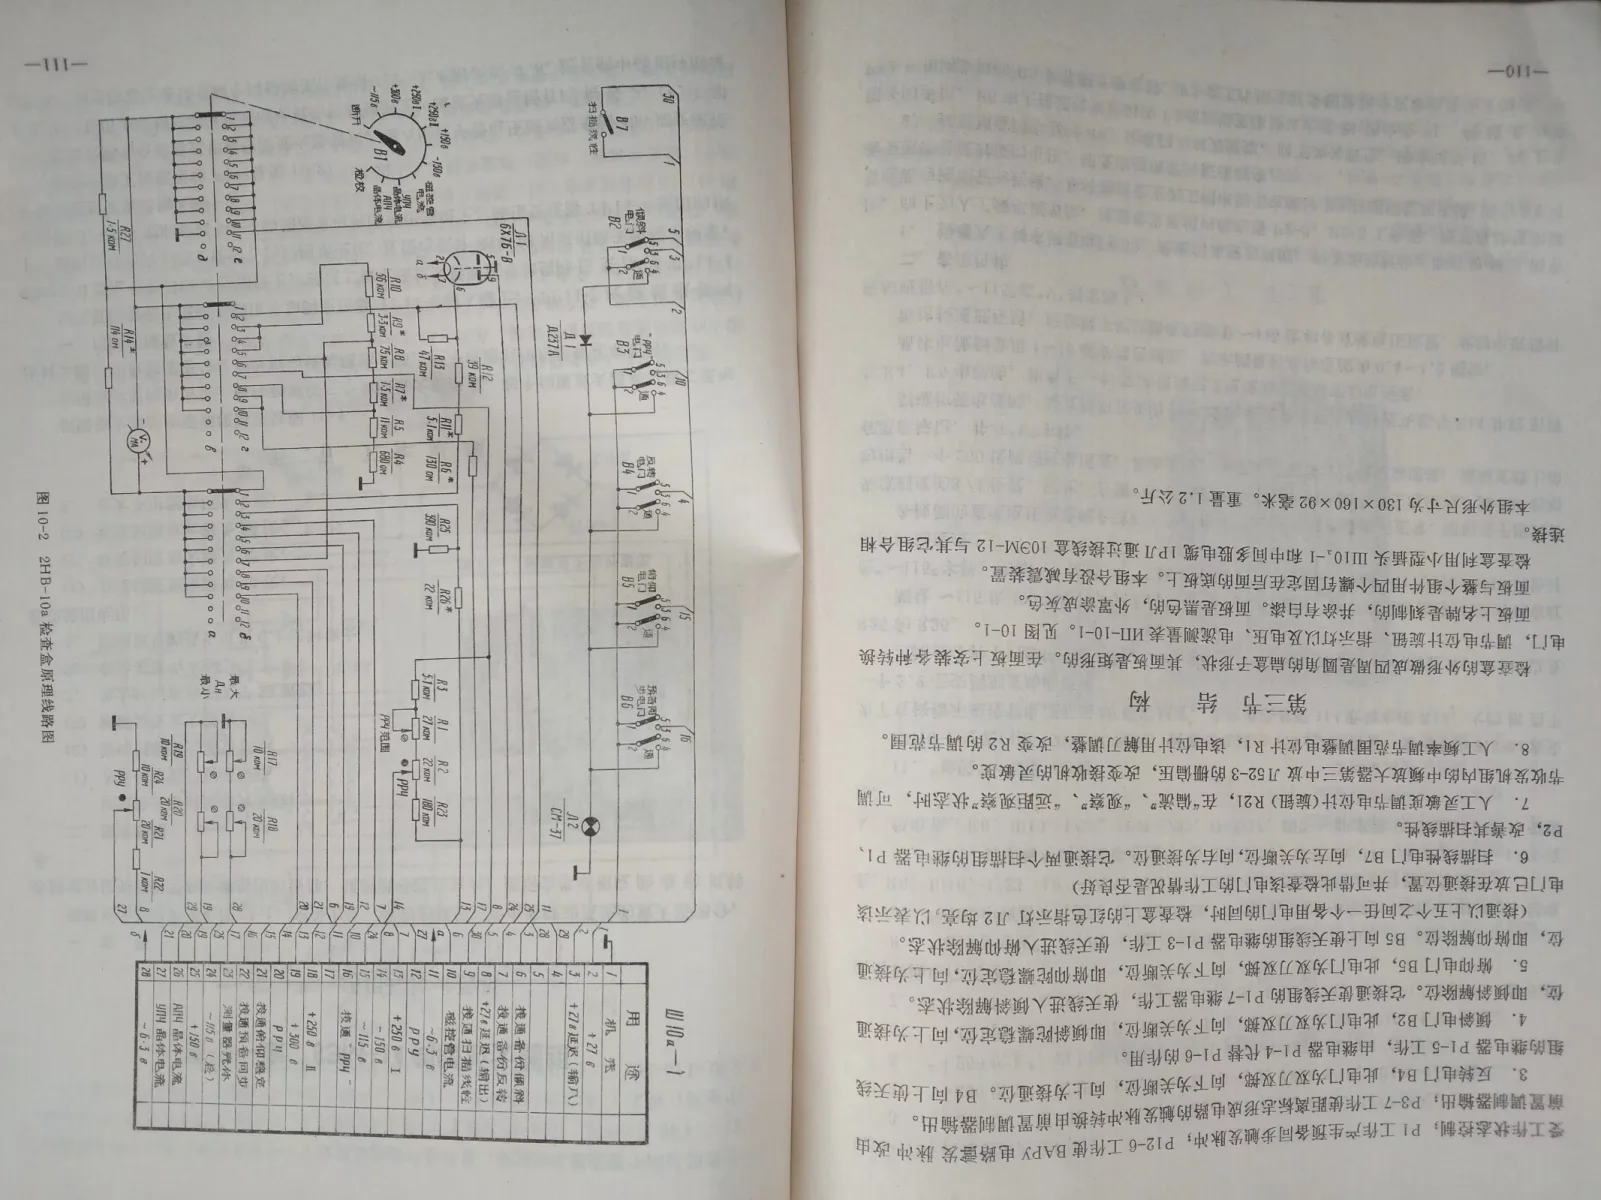 —110—
受工作状态控制，P1 工作产生预备同步触发脉冲，P12-6 工作使 BAPУ 电路露发脉冲改由
前置调制器输出，P3-7 工作使距离标志形成电路的触发脉冲转换由前置调制器输出。
3. 反转电门 B4，此电门为双刀双掷，向下为关断位，向上为接通位。B4 向上使天线
组的继电器 P1-5 工作，由继电器 P1-4 代替 P1-6 的作用。
4. 倾斜电门 B2，此电门为双刀双掷，向下为关断位，即倾斜陀螺稳定位，向上为接通
位，即倾斜解除位。它接通使天线组的 P1-7 继电器工作，使天线进入倾斜解除状态。
5. 俯仰电门 B5，此电门为双刀双掷，向下为关断位，即俯仰陀螺稳定位，向上为接通
位，即俯仰解除位。B5 向上使天线组的继电器 P1-3 工作，使天线进入俯仰解除状态。
（接通以上五个之间任一个备用电门的同时，检查盒上的红色指示灯 Л2 均亮，以表示该
电门已放在接通位置，并可借此检查该电门的工作情况是否良好）
6. 扫描线性电门 B7，向左为关断位，向右为接通位。它接通两个扫描组的继电器 P1、
P2，改善其扫描线性。
7. 人工灵敏度调节电位计（旋钮）R21，在“偏流”、“观察”、“远距观察”状态时，可调
节收发机组内的中频放大器第三中放 Л52-3 的栅偏压，改变接收机的灵敏度。
8. 人工频率调节范围调整电位计 R1，该电位计用解刀调整，改变 R2 的调节范围。
第三节 结 构
检查盒的外形做成四周是圆角的扁盒子形状，其面板是矩形的。在面板上安装各种转换
电门，调节电位计旋钮、指示灯以及电压、电流测量表 ИП-10-1。见图 10-1。
面板上名牌是刻制的，并涂有白漆。面板是黑色的，外罩涂成灰色。
面板与整个组件用四个螺钉固定在后面的底板上。本组合没有减震装置。
检查盒利用小型插头 Ш10a-1 和中间多股电缆 1РЛ 通过接线盒 10ЭM-12 与其它组合相
连接。
本组外形尺寸为 130×160×92 毫米。重量 1.2 公斤。
—111—
扫描线性
B7
30
1
倾斜
电门
B2
通
5
3
2
Д1
Д237A
“РРЧ”
电门
B3
通
10
反转
电门
B4
通
4
俯仰
电门
B5
通
15
预备同
步电门
B6
通
16
Л2
CM-37
断开
-115в
+300в
+250вⅡ
+250вⅠ
+150в
-150в
磁控管
电流
УПЧ
晶体电流
АПЧ
晶体电流
检校
B1
Л1
6X7Б-B
R10
56 ком
R9*
3·3 ком
R8
75 ком
R7*
1·5 ком
R5
11 ком
R4
680 ом
R13
47 ком
R12
39 ком
R11*
5·1 ком
R6*
130 ом
R25
390 ком
R26*
22 ком
R3
5·1 ком
R1
27 ком
R2
22 ком
R23
180 ком
РРЧ 范围
РРЧ
R27
1·5 ком
R14*
114 ом
V.
MA
最大
Дн
最小
R17
10 ком
R18
20 ком
R19
10 ком
R20
20 ком
R24
10 ком
R21
20 ком
R22
1 ком
РРУ
Ш10a—1
用 途
1 机壳
2 +27 в
3 +27в延迟（输入）
4
5
6 接通备份倾斜
7 接通备份反转
8 +27в延迟（输出）
9 接通扫描线性
10 磁控管电流
11 -6·3 в
12 РРУ
13 +250 в Ⅰ
14 -150 в
15 -115 в
16 接通“РРЧ”
17
18 +250 в Ⅱ
19 +300 в
20 РРЧ
21 接通俯仰稳定
22 接通预备同步
23 测量器壳体
24 -115 в（检）
25 +150 в
26 АПЧ晶体电流
27 УПЧ晶体电流
28 ~6·3 в
图 10-2 2HB-10a 检查盒原理线路图